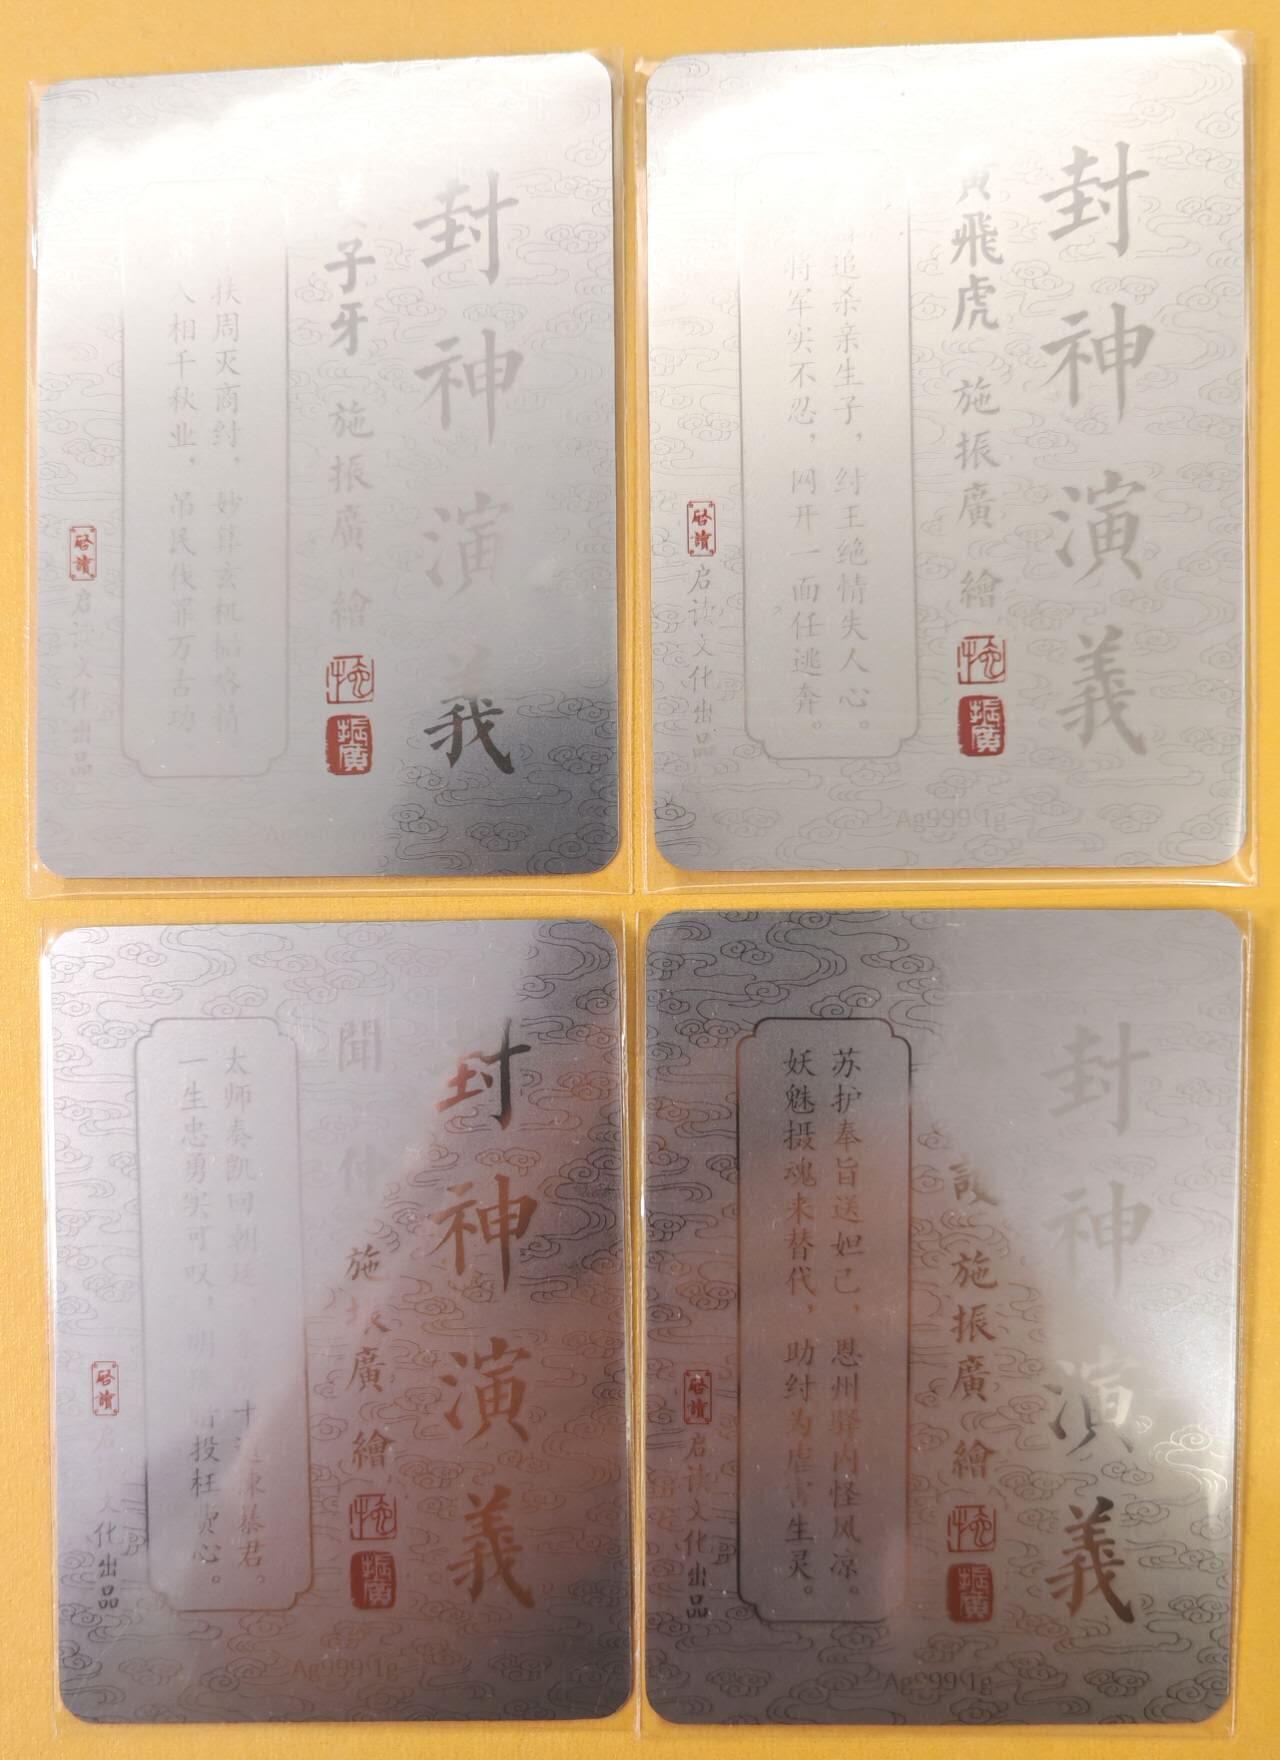 封神演義
子牙
施振廣繪
施
振廣
扶周灭商纣，妙算玄机韬略精
入相千秋业，吊民伐罪万古功
啓讀
启读文化出品
封神演義
黄飛虎
施振廣繪
施
振廣
追杀亲生子，纣王绝情失人心。
将军实不忍，网开一面任逃奔。
啓讀
启读文化出品
Ag999 1g
封神演義
聞仲
施振廣繪
施
振廣
太师奏凯回朝廷 十道谏暴君。
一生忠勇实可叹，明 暗投枉费心。
啓讀
启 文化出品
Ag999 1g
封神演義
施振廣繪
施
振廣
苏护奉旨送妲己，恩州驿内怪风凉。
妖魅摄魂来替代，助纣为虐害生灵。
啓讀
启读文化出品
Ag999 1g